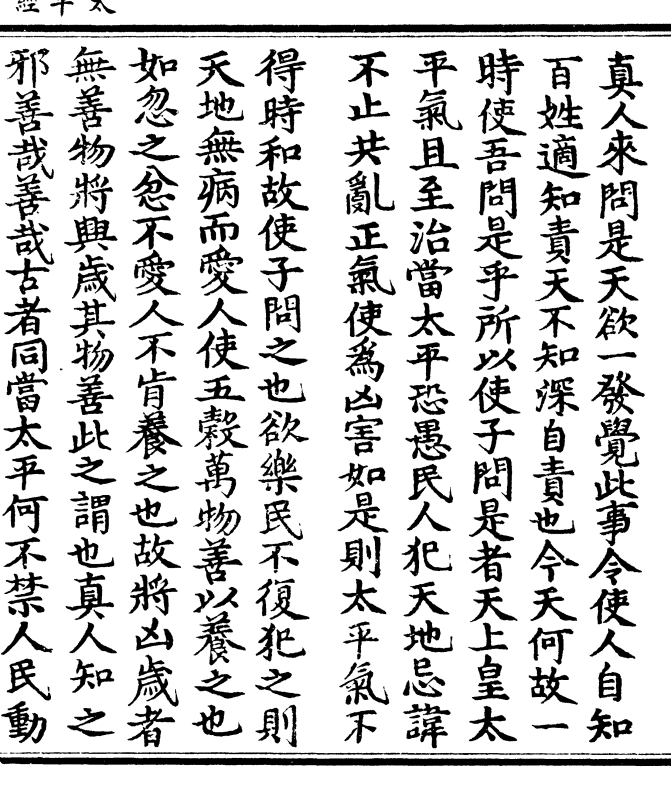 真人來問是天欲一發覺此事令使人自知
百姓適知責天不知深自責也今天何故一
時使吾問是乎所以使子問是者天上皇太
平氣且至治當太平恐愚民人犯天地忌諱
不止共亂正氣使爲凶害如是則太平氣不
得時和故使子問之也欲樂民不復犯之則
天地無病而愛人使五穀萬物善以養之也
如忽之忿不愛人不肯養之也故將凶歲者
無善物將興歲其物善此之謂也真人知之
邪善哉善哉古者同當太平何不禁人民動
太平經